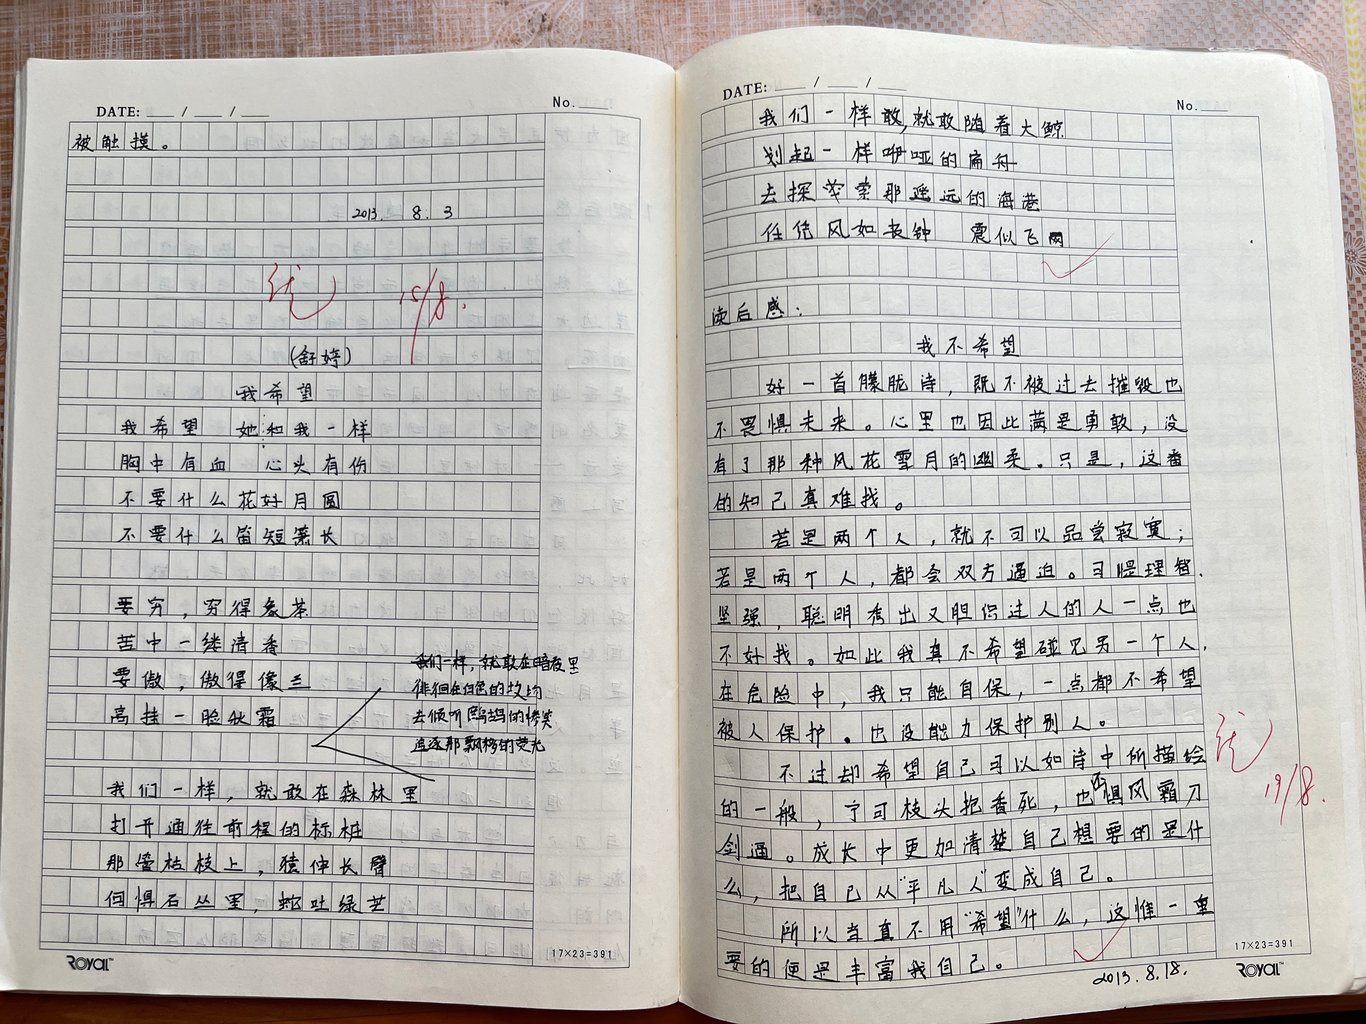 DATE: ___ / ___ / ___
No. ___
被触摸。
2013. 8. 3
优 15/8.
(舒婷)
我希望
我希望 她和我一样
胸中有血 心头有伤
不要什么花好月圆
不要什么笛短箫长
要穷，穷得象茶
苦中一缕清香
要傲，傲得像兰
高挂一脸秋霜
我们一样，就敢在暗夜里
徘徊在白色的坟场
去倾听鸱鸺的惨笑
追逐那飘移的荧光
我们一样，就敢在森林里
打开通往前程的标桩
那管枯枝上，猿伸长臂
何惧石丛里，蛇吐绿芒
17×23=391
ROYAL™
DATE: ___ / ___ / ___
No. ___
我们一样敢，就敢随着大鲸
划起一样咿哑的扁舟
去探索那遥远的海港
任凭风如丧钟 震似飞网
读后感：
我不希望
好一首朦胧诗，既不被过去摧毁也
不畏惧未来。心里也因此满是勇敢，没
有了那种风花雪月的幽柔。只是，这番
的知己真难找。
若是两个人，就不可以品尝寂寞；
若是两个人，都会双方逼迫。可惜理智、
坚强，聪明秀出又胆识过人的人一点也
不好找。如此我真不希望碰见另一个人，
在危险中，我只能自保，一点都不希望
被人保护。也没能力保护别人。
不过却希望自己可以如诗中所描绘
的一般，宁可枝头抱香死，也不惧风霜刀
剑逼。成长中更加清楚自己想要的是什
么，把自己从“平凡人”变成自己。
所以当真不用“希望”什么，这惟一重
要的便是丰富我自己。
优 19/8.
2013. 8. 18.
17×23=391
ROYAL™